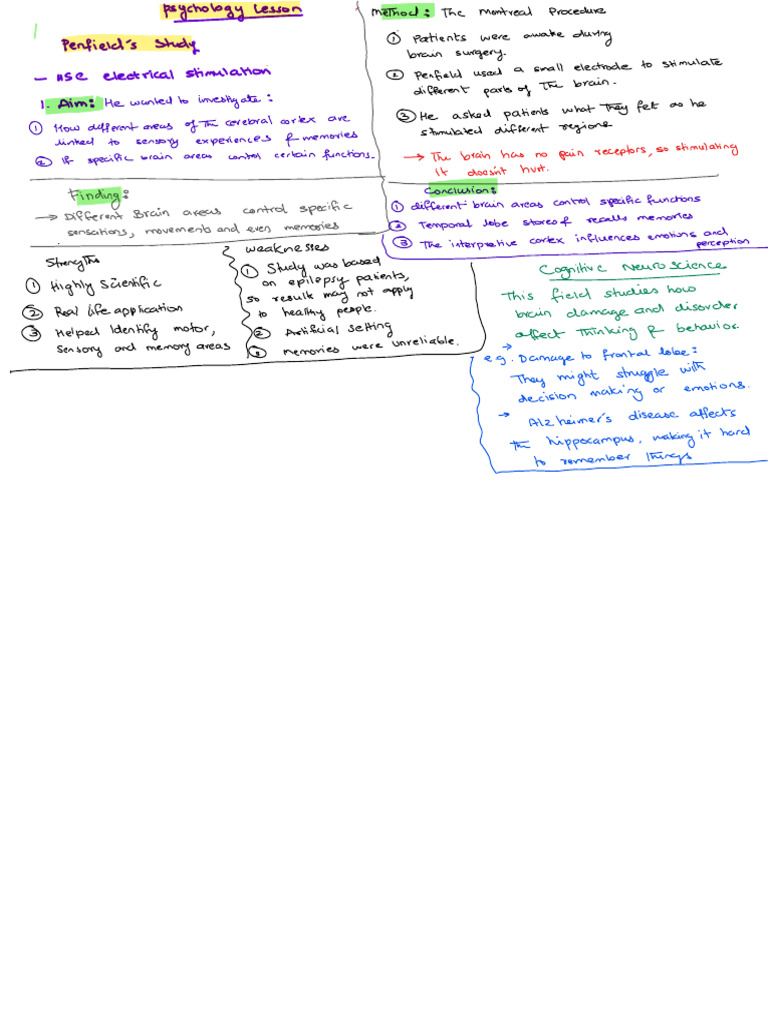 Psychology Lesson
Penfield's Study
- use electrical stimulation
1. Aim: He wanted to investigate:
① How different areas of the cerebral cortex are
linked to sensory experiences & memories
② If specific brain areas control certain functions.
Finding:
→ Different Brain areas control specific
sensations, movements and even memories
Method: The Montreal Procedure
① Patients were awake during
brain surgery.
② Penfield used a small electrode to stimulate
different parts of the brain.
③ He asked patients what they felt as he
stimulated different regions
→ The brain has no pain receptors, so stimulating
it doesn't hurt.
Conclusion:
① different brain areas control specific functions
② Temporal lobe stores & recalls memories
③ The interpretive cortex influences emotions and
perception
Strengths
① Highly Scientific
② Real life application
③ Helped Identify motor,
sensory and memory areas
weaknesses
① Study was based
on epilepsy patients,
so result may not apply
to healthy people.
② Artificial setting
③ memories were unreliable.
Cognitive Neuroscience
This field studies how
brain damage and disorder
affect thinking & behavior.
→
e.g. Damage to frontal lobe:
They might struggle with
decision making or emotions.
→ Alzheimer's disease affects
the hippocampus, making it hard
to remember things